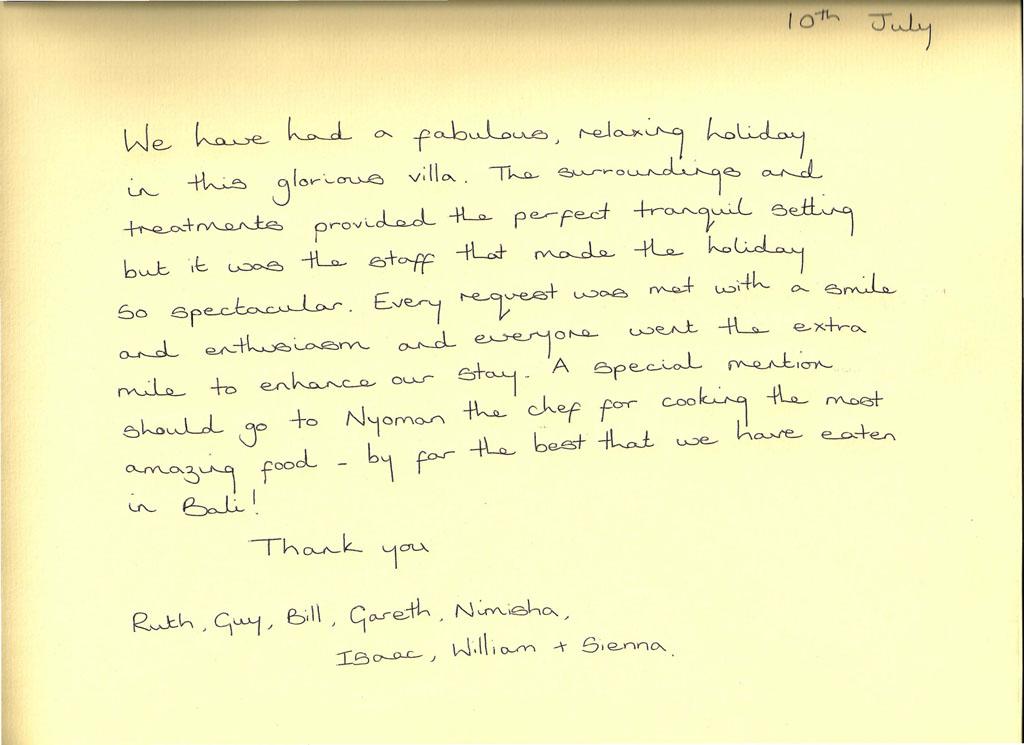 10th July
We have had a fabulous, relaxing holiday
in this glorious villa. The surroundings and
treatments provided the perfect tranquil setting
but it was the staff that made the holiday
so spectacular. Every request was met with a smile
and enthusiasm and everyone went the extra
mile to enhance our stay. A special mention
should go to Nyoman the chef for cooking the most
amazing food - by far the best that we have eaten
in Bali!
Thank you
Ruth, Guy, Bill, Gareth, Nimisha,
Isaac, William + Sienna.